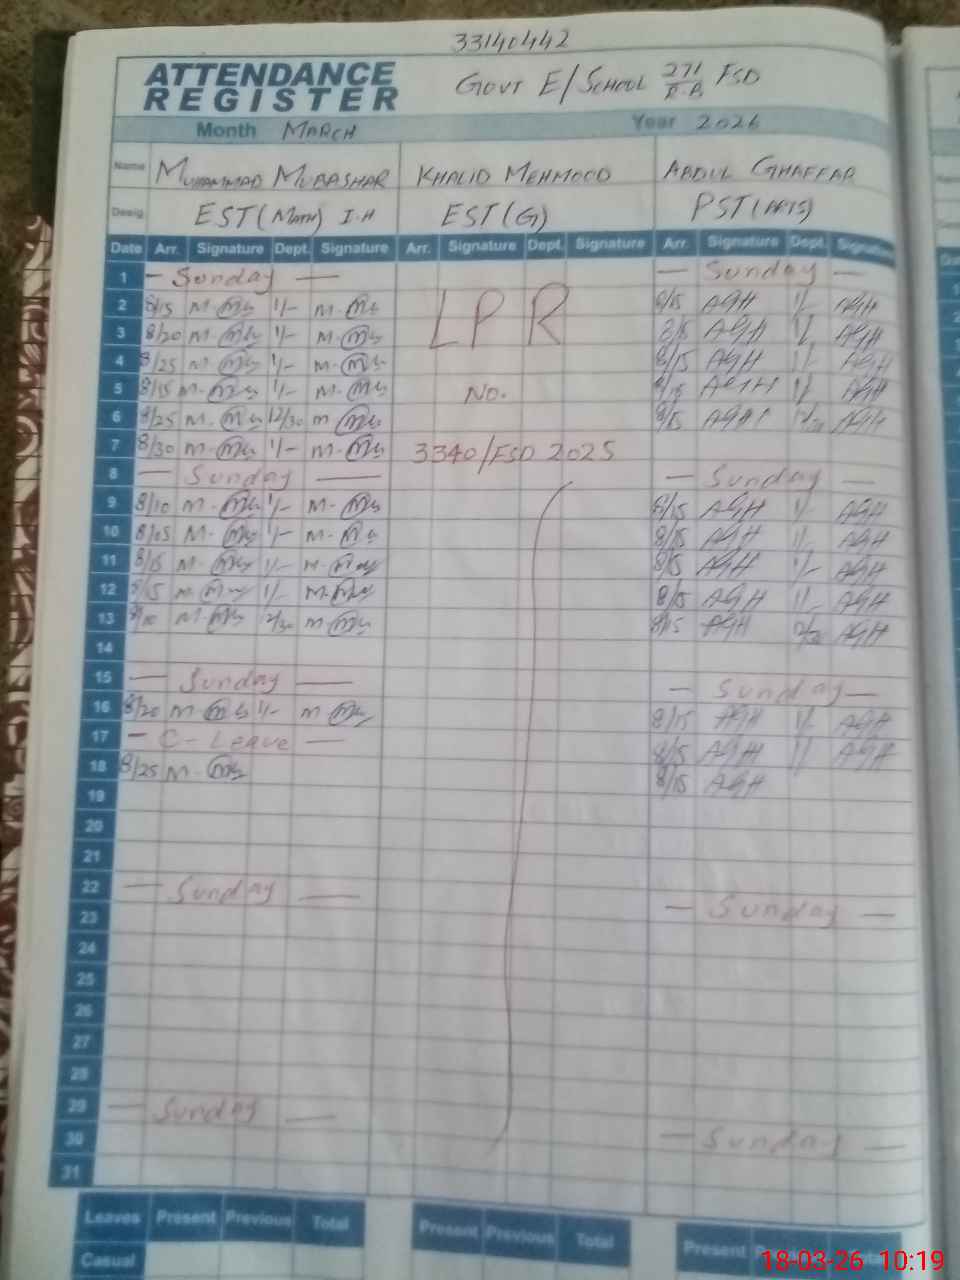 33140442
ATTENDANCE REGISTER
GOVT E/SCHOOL 271/R-B FSD
Month MARCH Year 2026
Name MUHAMMAD MUBASHAR KHALID MEHMOOD ABDUL GHAFFAR
Desig. EST(MATH) I-H EST(G) PST(
Date Arr. Signature Dept. Signature Arr. Signature Dept. Signature Arr. Signature Dept. Signature
1 — Sunday — — Sunday —
2 8/15 1/- LPR 8/15 AGH 1/- AGH
3 8/20 1/- 8/15 AGH 1/- AGH
4 8/25 1/- 8/15 AGH 1/- AGH
5 8/15 1/- No. AGH 1/- AGH
6 8/25 12/30 8/15 AGH 12/30 AGH
7 8/30 1/- 3340/FSD 2025
8 — Sunday — — Sunday —
9 8/10 1/- 8/15 AGH 1/- AGH
10 8/05 1/- 8/15 AGH 1/- AGH
11 8/15 1/- 8/15 AGH 1/- AGH
12 8/15 1/- 8/15 AGH 1/- AGH
13 8/10 12/30 8/15 AGH 12/30 AGH
14
15 — Sunday — — Sunday —
16 8/20 1/- 8/15 AGH 1/- AGH
17 — C-Leave — 8/15 AGH 1/- AGH
18 8/25 8/15 AGH
19
20
21
22 — Sunday — — Sunday —
23
24
25
26
27
28
29 — Sunday — — Sunday —
30
31
Leaves Present Previous Total Present Previous Total Present
Casual
18-03-26 10:19